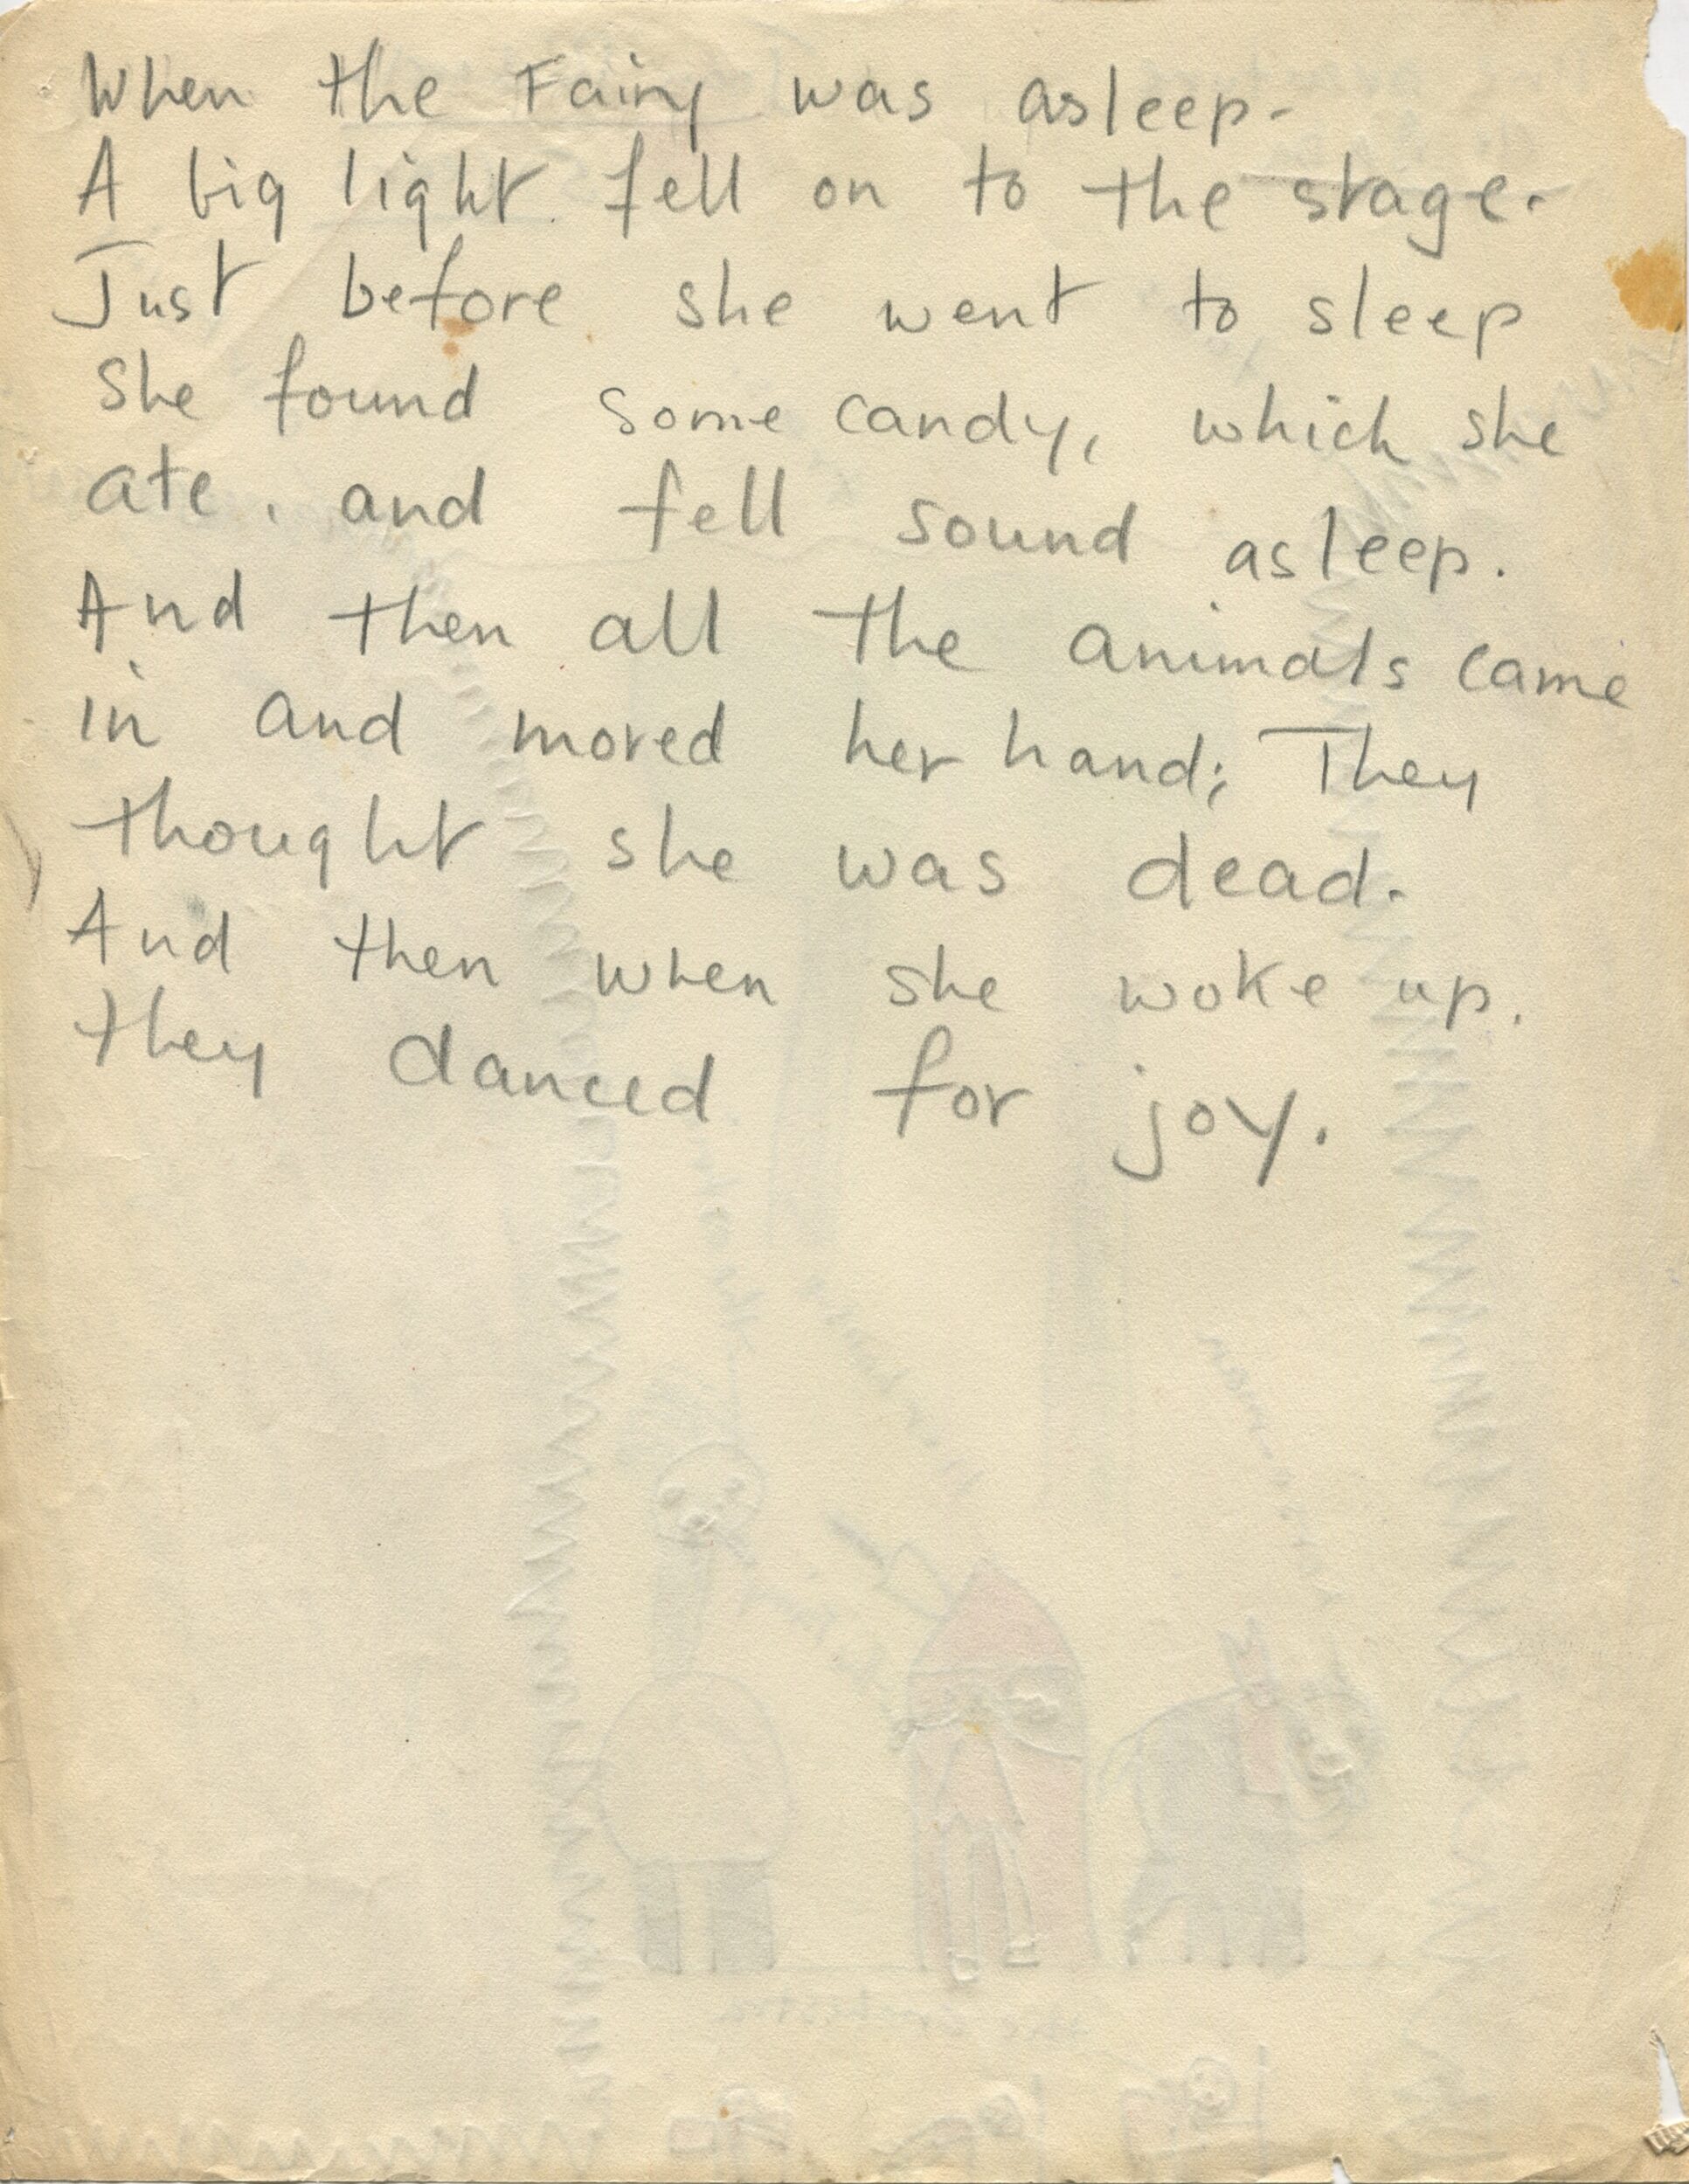 When the Fairy was asleep.
A big light fell on to the stage.
Just before she went to sleep
She found some candy, which she
ate, and fell sound asleep.
And then all the animals came
in and moved her hand; They
thought she was dead.
And then when she woke up.
they danced for joy.